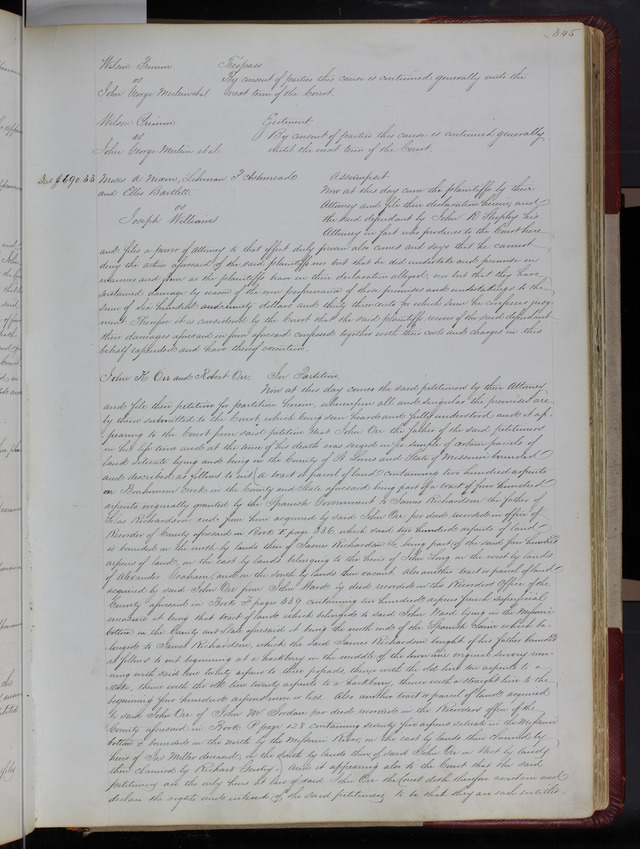 345
Wilson Primm Trespass
vs By consent of parties this cause is continued generally until the
John George Merlin et al next term of the Court.
Wilson Primm Ejectment
vs By consent of parties this cause is continued generally
John George Merlin et al until the next term of the Court.
$690.33 Moses A Nixon, Lehman P Ashmead Assumpsit
and Ellis Bartlett Now at this day come the plaintiffs by their
vs Attorney and file their declaration herein, and
Joseph Williams the said defendant by John R Shepley his
Attorney in fact who produces to the Court here
and files a power of attorney to that effect duly proven also comes and says that he cannot
deny the action aforesaid of the said plaintiffs nor but that he did undertake and promise in
manner and form as the plaintiffs have in their declaration alleged, nor but that they have
sustained damage by reason of the non performance of those promises and undertakings to the
sum of six hundred and ninety dollars and thirty three cents for which sum he confesses judg
ment. Therefore it is considered by the Court that the said plaintiffs recover of the said defendant
their damages aforesaid in form aforesaid confessed together with their costs and charges in this
behalf expended and have thereof execution.
John K Orr and Robert Orr. In Partition
Now at this day comes the said petitioners by their Attorney
and file their petition for partition herein, whereupon all and singular the premises are
by them submitted to the Court, which being seen heard and fully understood, and it ap-
pearing to the Court from said petition that John Orr the father of the said petitioners
in his life time and at the time of his death was seized in fee simple of certain parcels of
Land situate lying and being in the County of St Louis and State of Missouri bounded
and described as follows to wit, a tract or parcel of land containing two hundred arpents
on Bonhomme Creek in the County and State aforesaid being part of a tract of five hundred
arpents originally granted by the Spanish Government to James Richardson the father of
Silas Richardson and from him acquired by said John Orr per deed recorded in office of
Recorder of County aforesaid in Book F page 336, which said two hundred arpents of land
is bounded on the north by lands then of James Richardson & being part of the said five hundred
arpens of land, on the east by lands belonging to the heirs of John Long on the west by lands
of Alexander Graham, and on the south by lands then vacant. Also another tract or parcel of land
acquired by said John Orr from John Ward by deed recorded in the Recorders Office of the
County aforesaid in Book F page 339 containing two hundred arpens french superficial
measure it being that tract of land which belonged to said John Ward lying in the Missouri
bottom in the County and State aforesaid it being the north side of the Spanish Claim which be-
longed to James Richardson, which the said James Richardson bought of his father bounded
as follows to wit beginning at a hackberry in the middle of the lower line original survey run-
ning with said line twenty arpens to three, thence with the old line six arpents to a
stake, thence with the old line twenty arpents to a hackberry, thence with a straight line to the
beginning four hundred arpens more or less. Also another tract or parcel of lands acquired
by said John Orr of John W Jordan per deed recorded in the Recorders office of the
County aforesaid in Book P page 128 containing seventy five arpens situate in the Missouri
bottom & bounded on the north by the Missouri River, on the east by lands then claimed by
heirs of Jas Miller deceased, on the south by lands then of said John Orr & West by lands
then claimed by Richard Gentry. And it appearing also to the Court that the said
petitioners are the only heirs at law of said John Orr the Court doth therefore ascertain and
declare the rights and interest of the said petitioners to be that they are each entitled